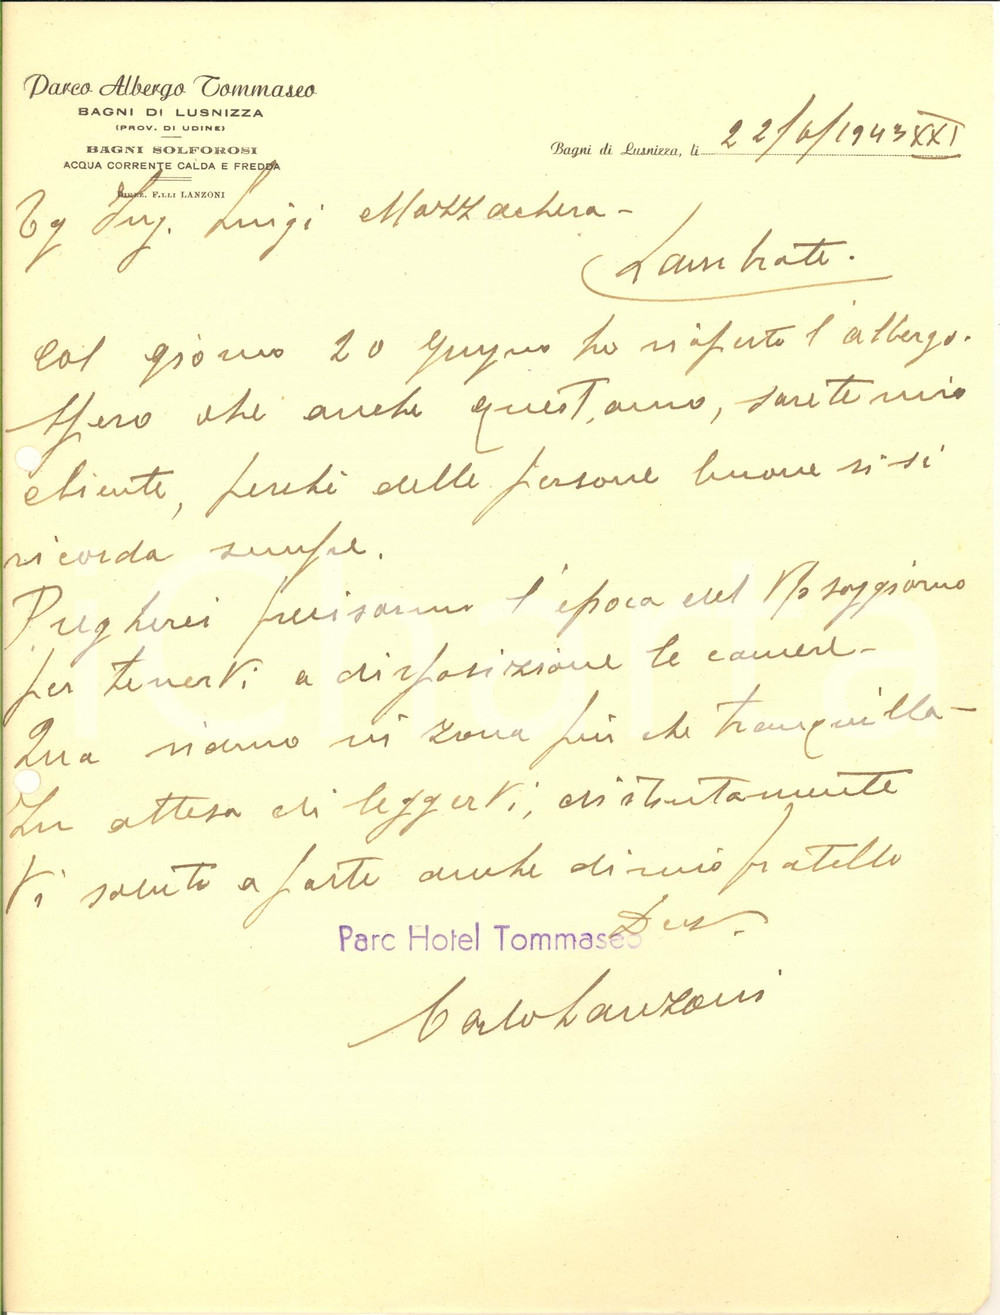 Parco Albergo Tommaseo
BAGNI DI LUSNIZZA
(PROV. DI UDINE)
BAGNI SOLFOROSI
ACQUA CORRENTE CALDA E FREDDA
DIREZ. F.LLI LANZONI
Bagni di Lusnizza, li 22/6/1943 XXI
Eg Ing. Luigi Mazzachera -
Lambrate.
Col giorno 20 Giugno ho riaperto l'albergo.
Spero che anche quest'anno, sarete mio
cliente, perchè delle persone buone vi si
ricorda sempre.
Pregherei precisarmi l'epoca del Vs soggiorno
per tenerVi a disposizione le camere -
Qua siamo in zona più che tranquilla -
In attesa di leggerVi, distintamente
Vi saluto a parte anche di mio fratello
Dev.
Parc Hotel Tommaseo
Carlo Lanzoni
iCharta